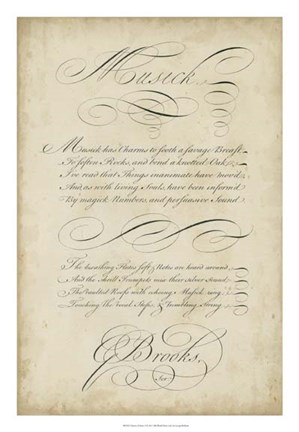 Musick
Musick has Charms to sooth a savage Breast
To soften Rocks, and bend a knotted Oak
I've read that Things inanimate have mov'd
And, as with living Souls, have been informed
By magick Numbers and persuasive Sound
The breathing Flutes soft Notes are heard around
And the Shrill Trumpets mix their Silver Sound
The Vaulted Roofs with echoing Musick ring
Touching the vocal Pipe &
E Brooks,
Scr: